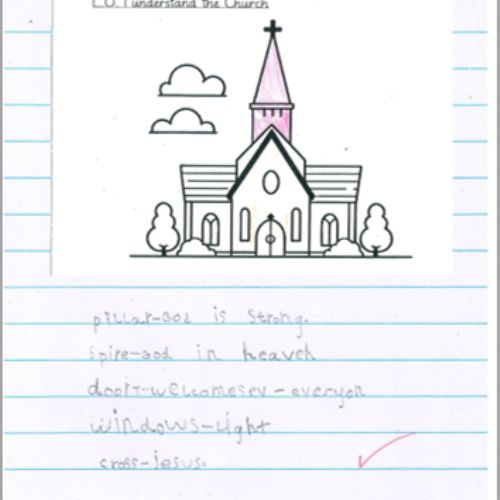 L.O. I understand the Church
pillar-God is strong.
Spire-God in heaven
door-welcomesev-everyon
windows-Light
cross-jesus.